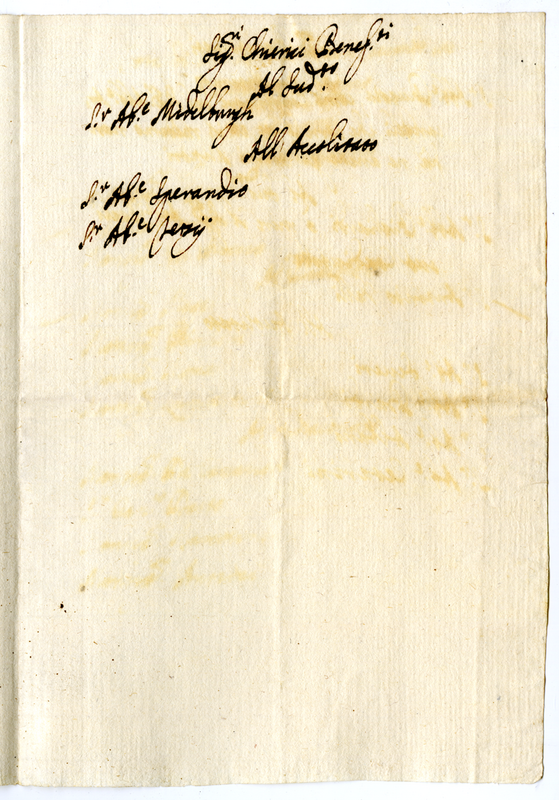 Sig.ri Chierici Benef.ti
Al Sud.to
S.r Ab.e Midelburgh
All Accolitato
S.r Ab.e Sperandio
S.r Ab.e